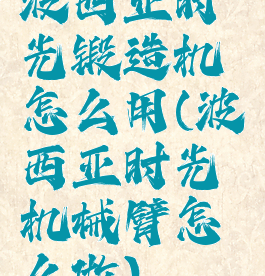 波西亚时
光锻造机
怎么用(波
西亚时光
机械臂怎
么做)